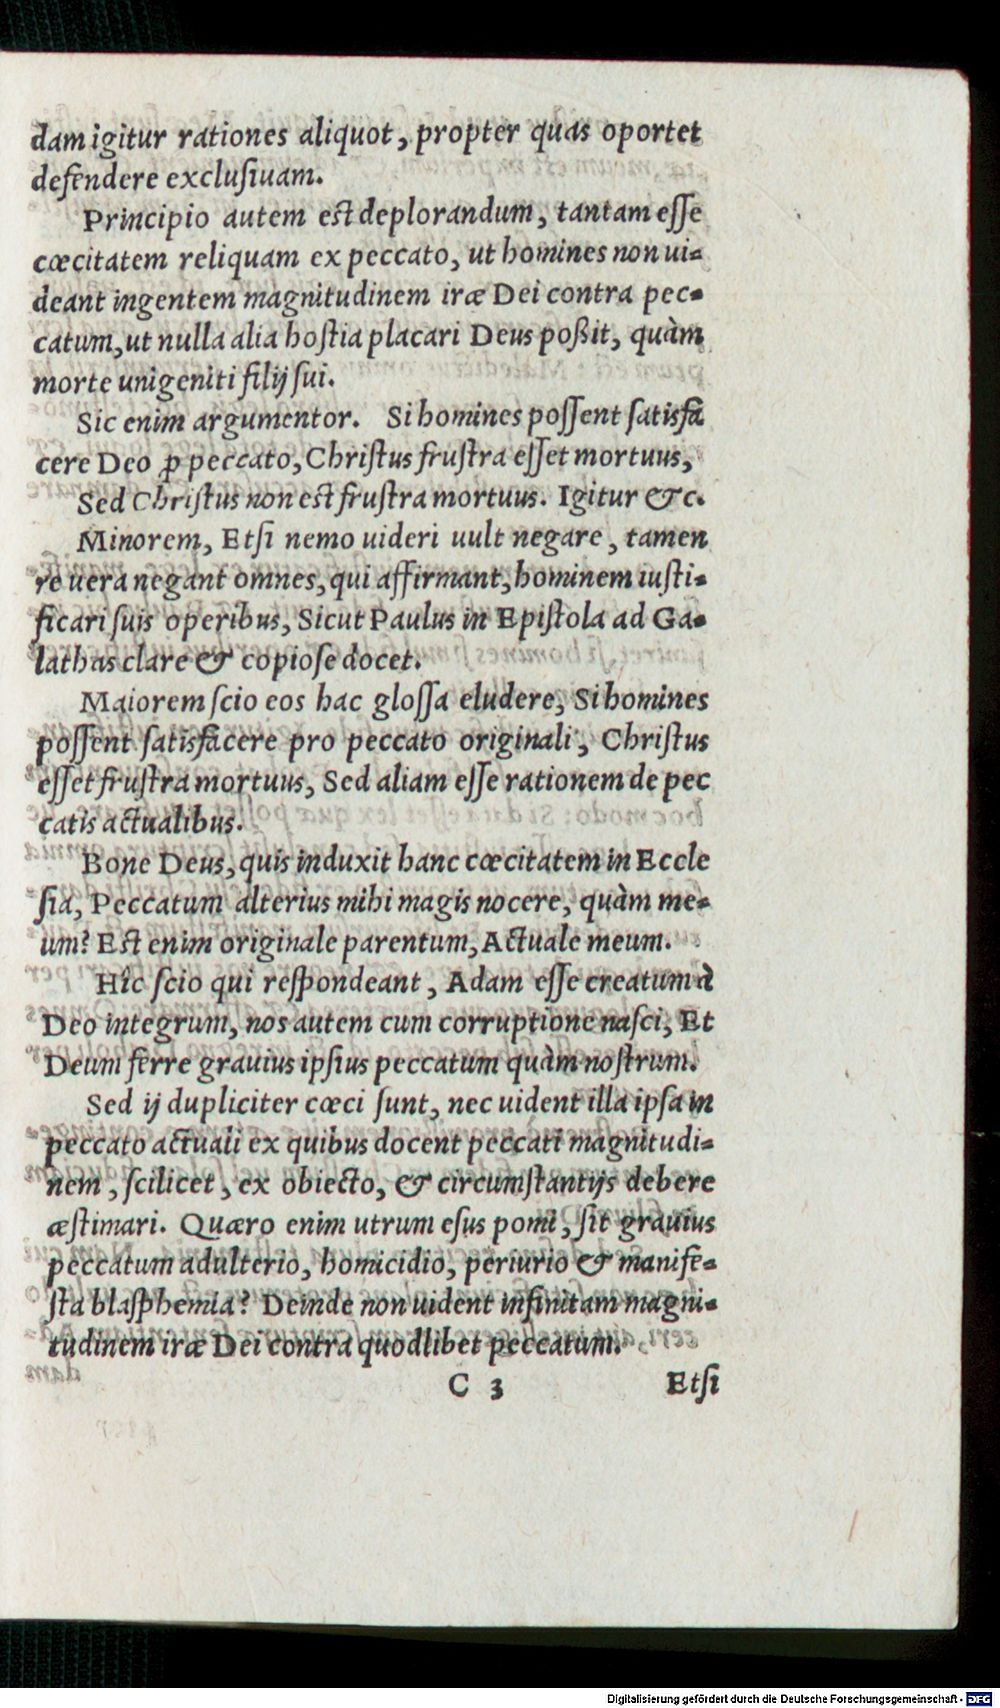 dam igitur rationes aliquot, propter quas oportet
defendere exclusiuam.
Principio autem est deplorandum, tantam eſſe
cœcitatem reliquam ex peccato, ut homines non ui-
deant ingentem magnitudinem iræ Dei contra pec-
catum, ut nulla alia hoſtia placari Deus poßit, quàm
morte unigeniti filij ſui.
Sic enim argumentor. Si homines poſſent ſatisfa
cere Deo ꝓ peccato, Chriſtus fruſtra eſſet mortuus,
Sed Chriſtus non est fruſtra mortuus. Igitur &c.
Minorem, Etſi nemo uideri uult negare, tamen
re uera negant omnes, qui affirmant, hominem iuſti-
ficari ſuis operibus, Sicut Paulus in Epiſtola ad Ga-
lathas clare & copioſe docet.
Maiorem ſcio eos hac gloſſa eludere, Si homines
poſſent ſatisfacere pro peccato originali, Chriſtus
eſſet fruſtra mortuus, Sed aliam eſſe rationem de pec
catis actualibus.
Bone Deus, quis induxit hanc cœcitatem in Eccle
ſia, Peccatum alterius mihi magis nocere, quàm me-
um? Est enim originale parentum, Actuale meum.
Hîc ſcio qui reſpondeant, Adam eſſe creatum à
Deo integrum, nos autem cum corruptione naſci, Et
Deum ferre grauius ipſius peccatum quàm noſtrum.
Sed ij dupliciter cœci ſunt, nec uident illa ipſa in
peccato actuali ex quibus docent peccati magnitudi-
nem, ſcilicet, ex obiecto, & circumſtantijs debere
æſtimari. Quæro enim utrum eſus pomi, ſit grauius
peccatum adulterio, homicidio, periurio & manife-
ſta blaſphemia? Deinde non uident infinitam magni-
tudinem iræ Dei contra quodlibet peccatum.
C 3 Etſi
Digitalisierung gefördert durch die Deutsche Forschungsgemeinschaft - DFG